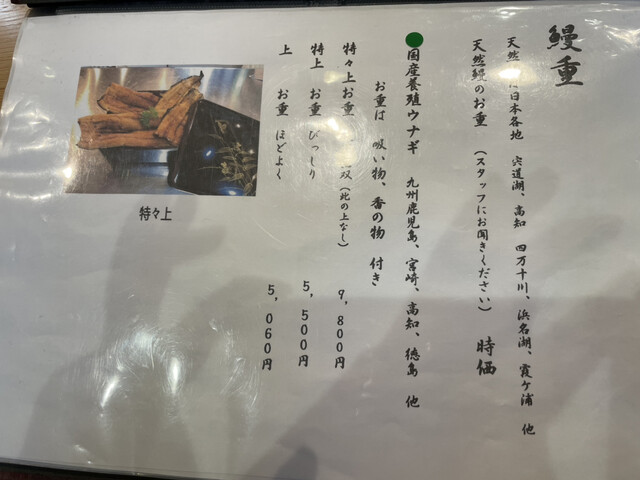 鰻重
天然 日本各地 宍道湖、高知 四万十川、浜名湖、霞ヶ浦 他
天然鰻のお重 (スタッフにお聞きください) 時価
●国産養殖ウナギ 九州鹿児島、宮崎、高知、徳島 他
お重は 吸い物、香の物 付き
特々上お重 双(此の上なし) 9,800円
特上 お重 びっしり 5,500円
上 お重 ほどよく 5,060円
特々上